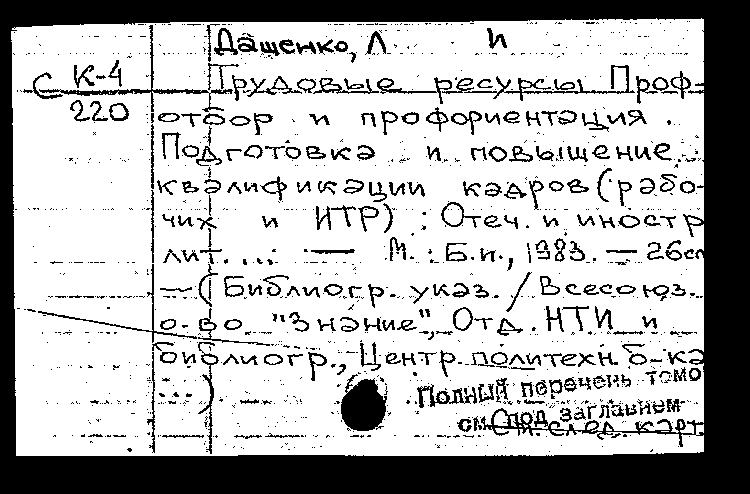 Дащенко, Л И
С К-4
220
Трудовые ресурсы Проф-
отбор и профориентация.
Подготовка и повышение
квалификации кадров (рабо-
чих и ИТР) : Отеч. и иностр
лит. ... — М. : Б.и., 1983. — 26сл
— (Библиогр. указ. / Всесоюз.
о-во "Знание", Отд. НТИ и
библиогр., Центр. политехн. б-ка
...).
Полный перечень томо
см. под заглавием
См. след. карт.